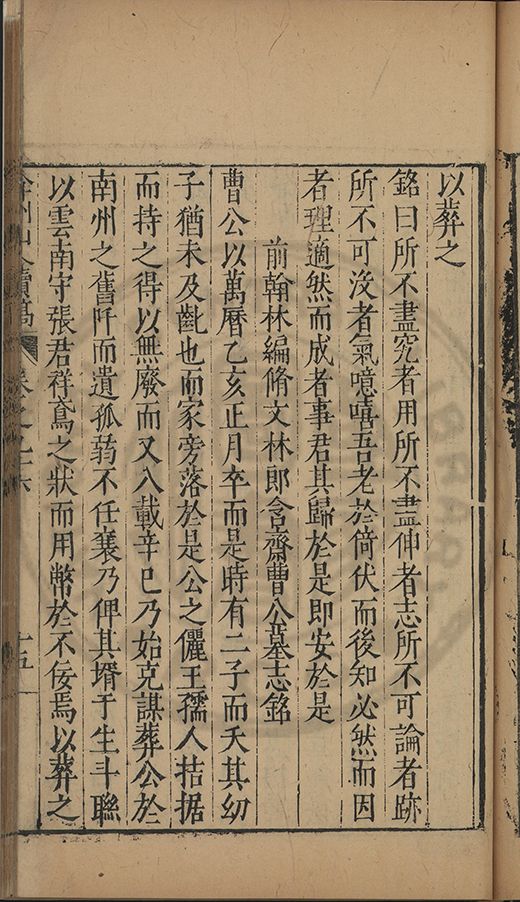 以葬之
銘曰所不盡究者用所不盡伸者志所不可論者跡
所不可沒者氣噫嘻吾老於倚伏而後知必然而因
者理適然而成者事君其歸於是即安於是
前翰林編脩文林郎含齋曹公墓志銘
曹公以萬曆乙亥正月卒而是時有二子而夭其幼
子猶未及齔也而家旁落於是公之儷王孺人拮据
而持之得以無廢而又八載辛巳乃始克謀葬公於
南州之舊阡而遺孤蒻不任襄乃俾其壻于生斗聯
以雲南守張君祥鳶之狀而用幣於不佞焉以葬之
弇州山人續稿 卷之九十六 十五